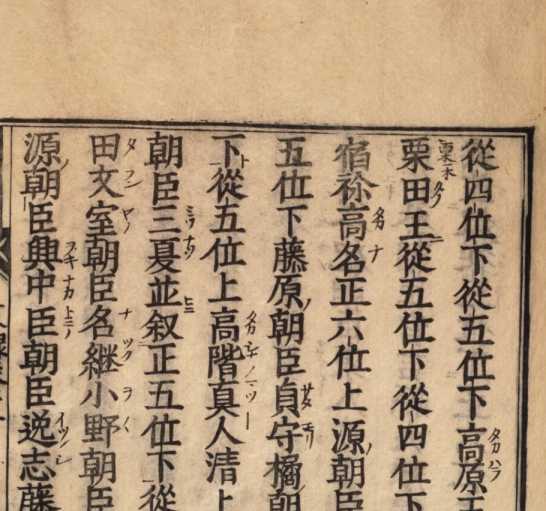 從四位下從五位下高原王
栗田王從五位下從四位下
宿祢高名正六位上源朝臣
五位下藤原朝臣貞守橘朝
下從五位上高階真人清上
朝臣三夏並叙正五位下從
田文室朝臣名繼小野朝臣
源朝臣興中臣朝臣逸志藤